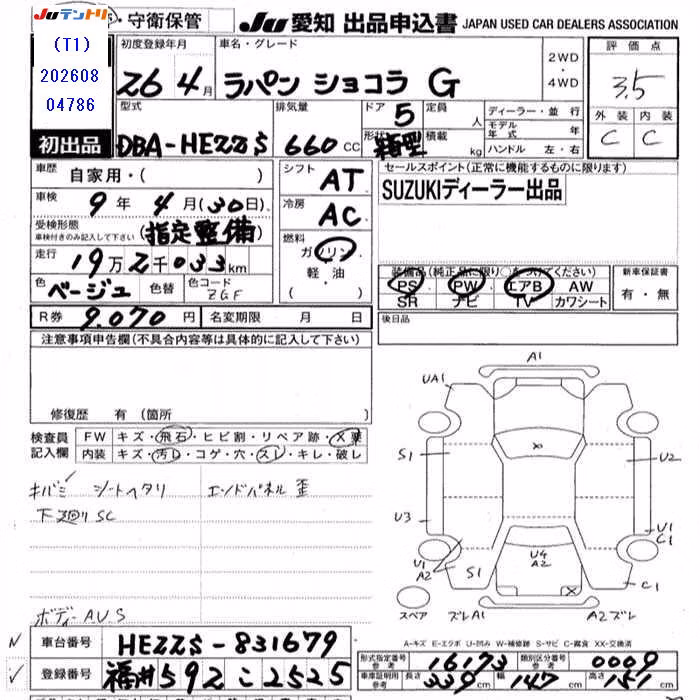 JUテントリ
・守衛保管
JU 愛知 出品申込書 JAPAN USED CAR DEALERS ASSOCIATION
(T1)
202608
04786
初出品
初度登録年月
26 4月
車名・グレード
ラパン ショコラ G
2WD
・
4WD
評価点
3.5
外装 内装
C C
型式
DBA-HE22S
排気量
660 CC
ドア
5
形状
箱型
定員
人
積載
kg
ディーラー・並行
モデル年式 年
ハンドル 左・右
車歴
自家用・( )
車検
9年 4月(30日)
受検形態
車検付きのみ記入して下さい
(指定整備)
走行
19万2千033km
色
ベージュ
色替
色コード
ZGF
シフト
AT
冷房
AC
燃料
ガソリン
軽・油
( )
セールスポイント(正常に機能するものに限ります)
SUZUKIディーラー出品
装備品(純正品に限り○をつけてください)
PS PW エアB AW
SR ナビ TV カワシート
新車保証書
有・無
後日品
R券 9,070円
名変期限 月 日
注意事項申告欄(不具合内容等は具体的に記入して下さい)
修復歴 有(箇所 )
検査員
記入欄
FW キズ・飛石・ヒビ割・リペア跡・X要
内装 キズ・汚レ・コゲ・穴・スレ・キレ・破レ
キバミ シートヘタリ エンドパネル歪
下廻りSC
ボディーAUS
A1
UA1
S1
U2
U3
U1
C1
U1
A2
S1
U4
A2
C1
X
X
スペア
ズレA1
A2ズレ
A-キズ E-エクボ U-凹み W-補修跡 S-サビ C-腐食 XX-交換済
車台番号
HE22S-831679
登録番号
福井592こ2525
形式指定番号
参考
16173
類別区分番号
参考
0009
車庫証明用
参考
長さ 339cm
幅 147cm
高さ 151cm